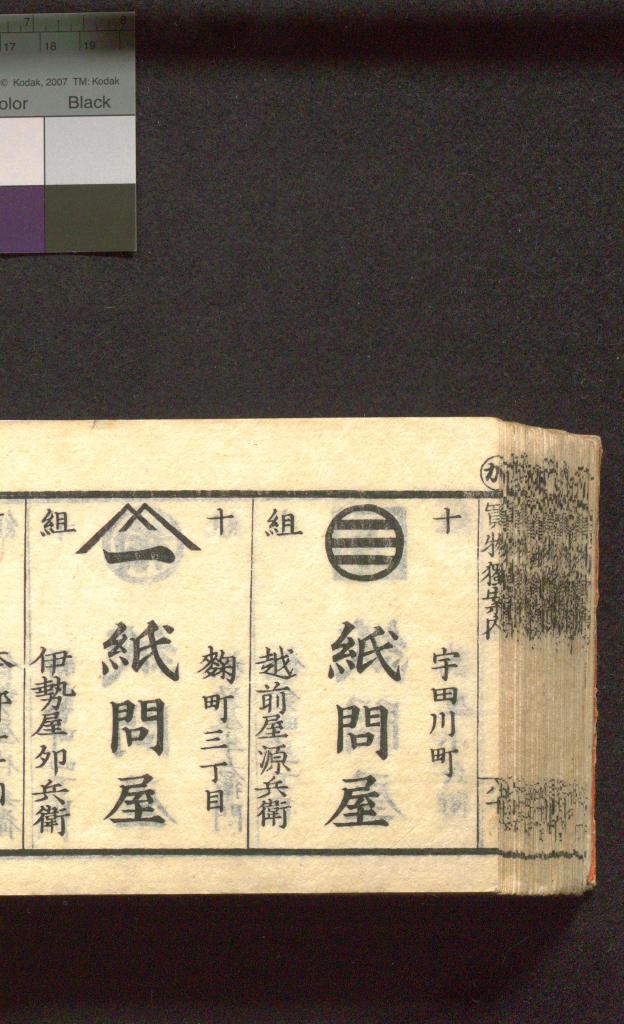 7 8
17 18 19
© Kodak, 2007 TM: Kodak
olor Black
か
買物獨案内
十組
宇田川町
紙問屋
越前屋源兵衛
十組
一
麹町三丁目
紙問屋
伊勢屋卯兵衛